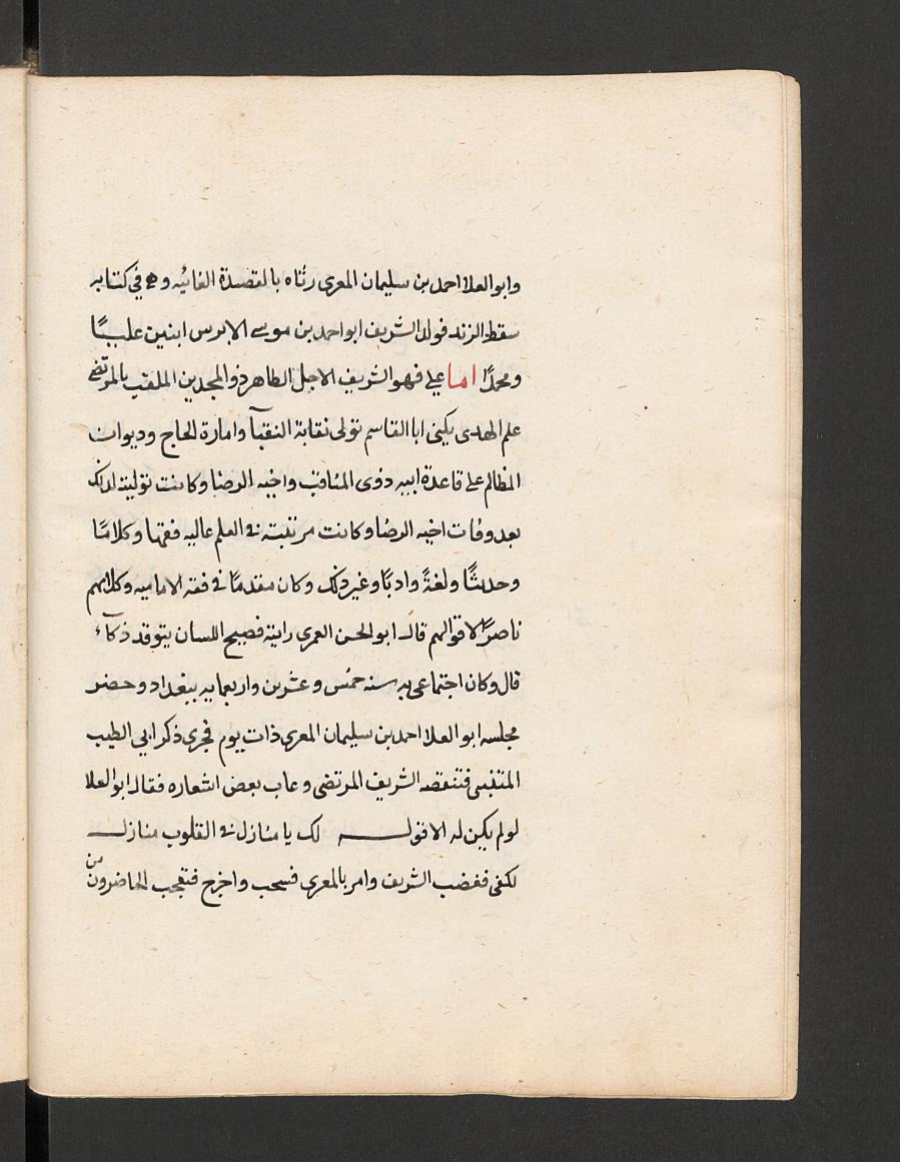 وابو العلا احمد بن سليمان المعري رثاه بالقصيدة الفائيه وهي في كتابه
سقط الزند فولد الشريف ابو احمد بن موسى الابرس ابنين عليًا
ومحمدًا اما علي فهو الشريف الاجل الطاهر ذو المجدين الملقب بالمرتضى
علم الهدى يكنى ابا القاسم تولى نقابة النقبآ وامارة الحاج وديوان
المظالم على قاعدة ابيه ذوى المناقب واخيه الرضا وكانت توليته لذلك
بعد وفات اخيه الرضا وكانت مرتبته في العلم عاليه فقها وكلامًا
وحديثًا ولغةً وادبًا وغير ذلك وكان مقدمًا في فقه الاماميه وكلامهم
ناصرًا لاقوالهم قال ابو الحسن العمري رايته فصيح اللسان يتوقد ذكآء
قال وكان اجتماعي به سنه خمس وعشرين واربعمايه ببغداد وحضر
مجلسه ابو العلا احمد بن سليمان المعري ذات يوم فجرى ذكر ابي الطيب
المتنبى فتنقصه الشريف المرتضى وعاب بعض اشعاره فقال ابو العلا
لو لم يكن له الا قوله لك يا منازل في القلوب منازل
لكفى فغضب الشريف وامر بالمعري فسحب واخرج فتعجب الحاضرون من